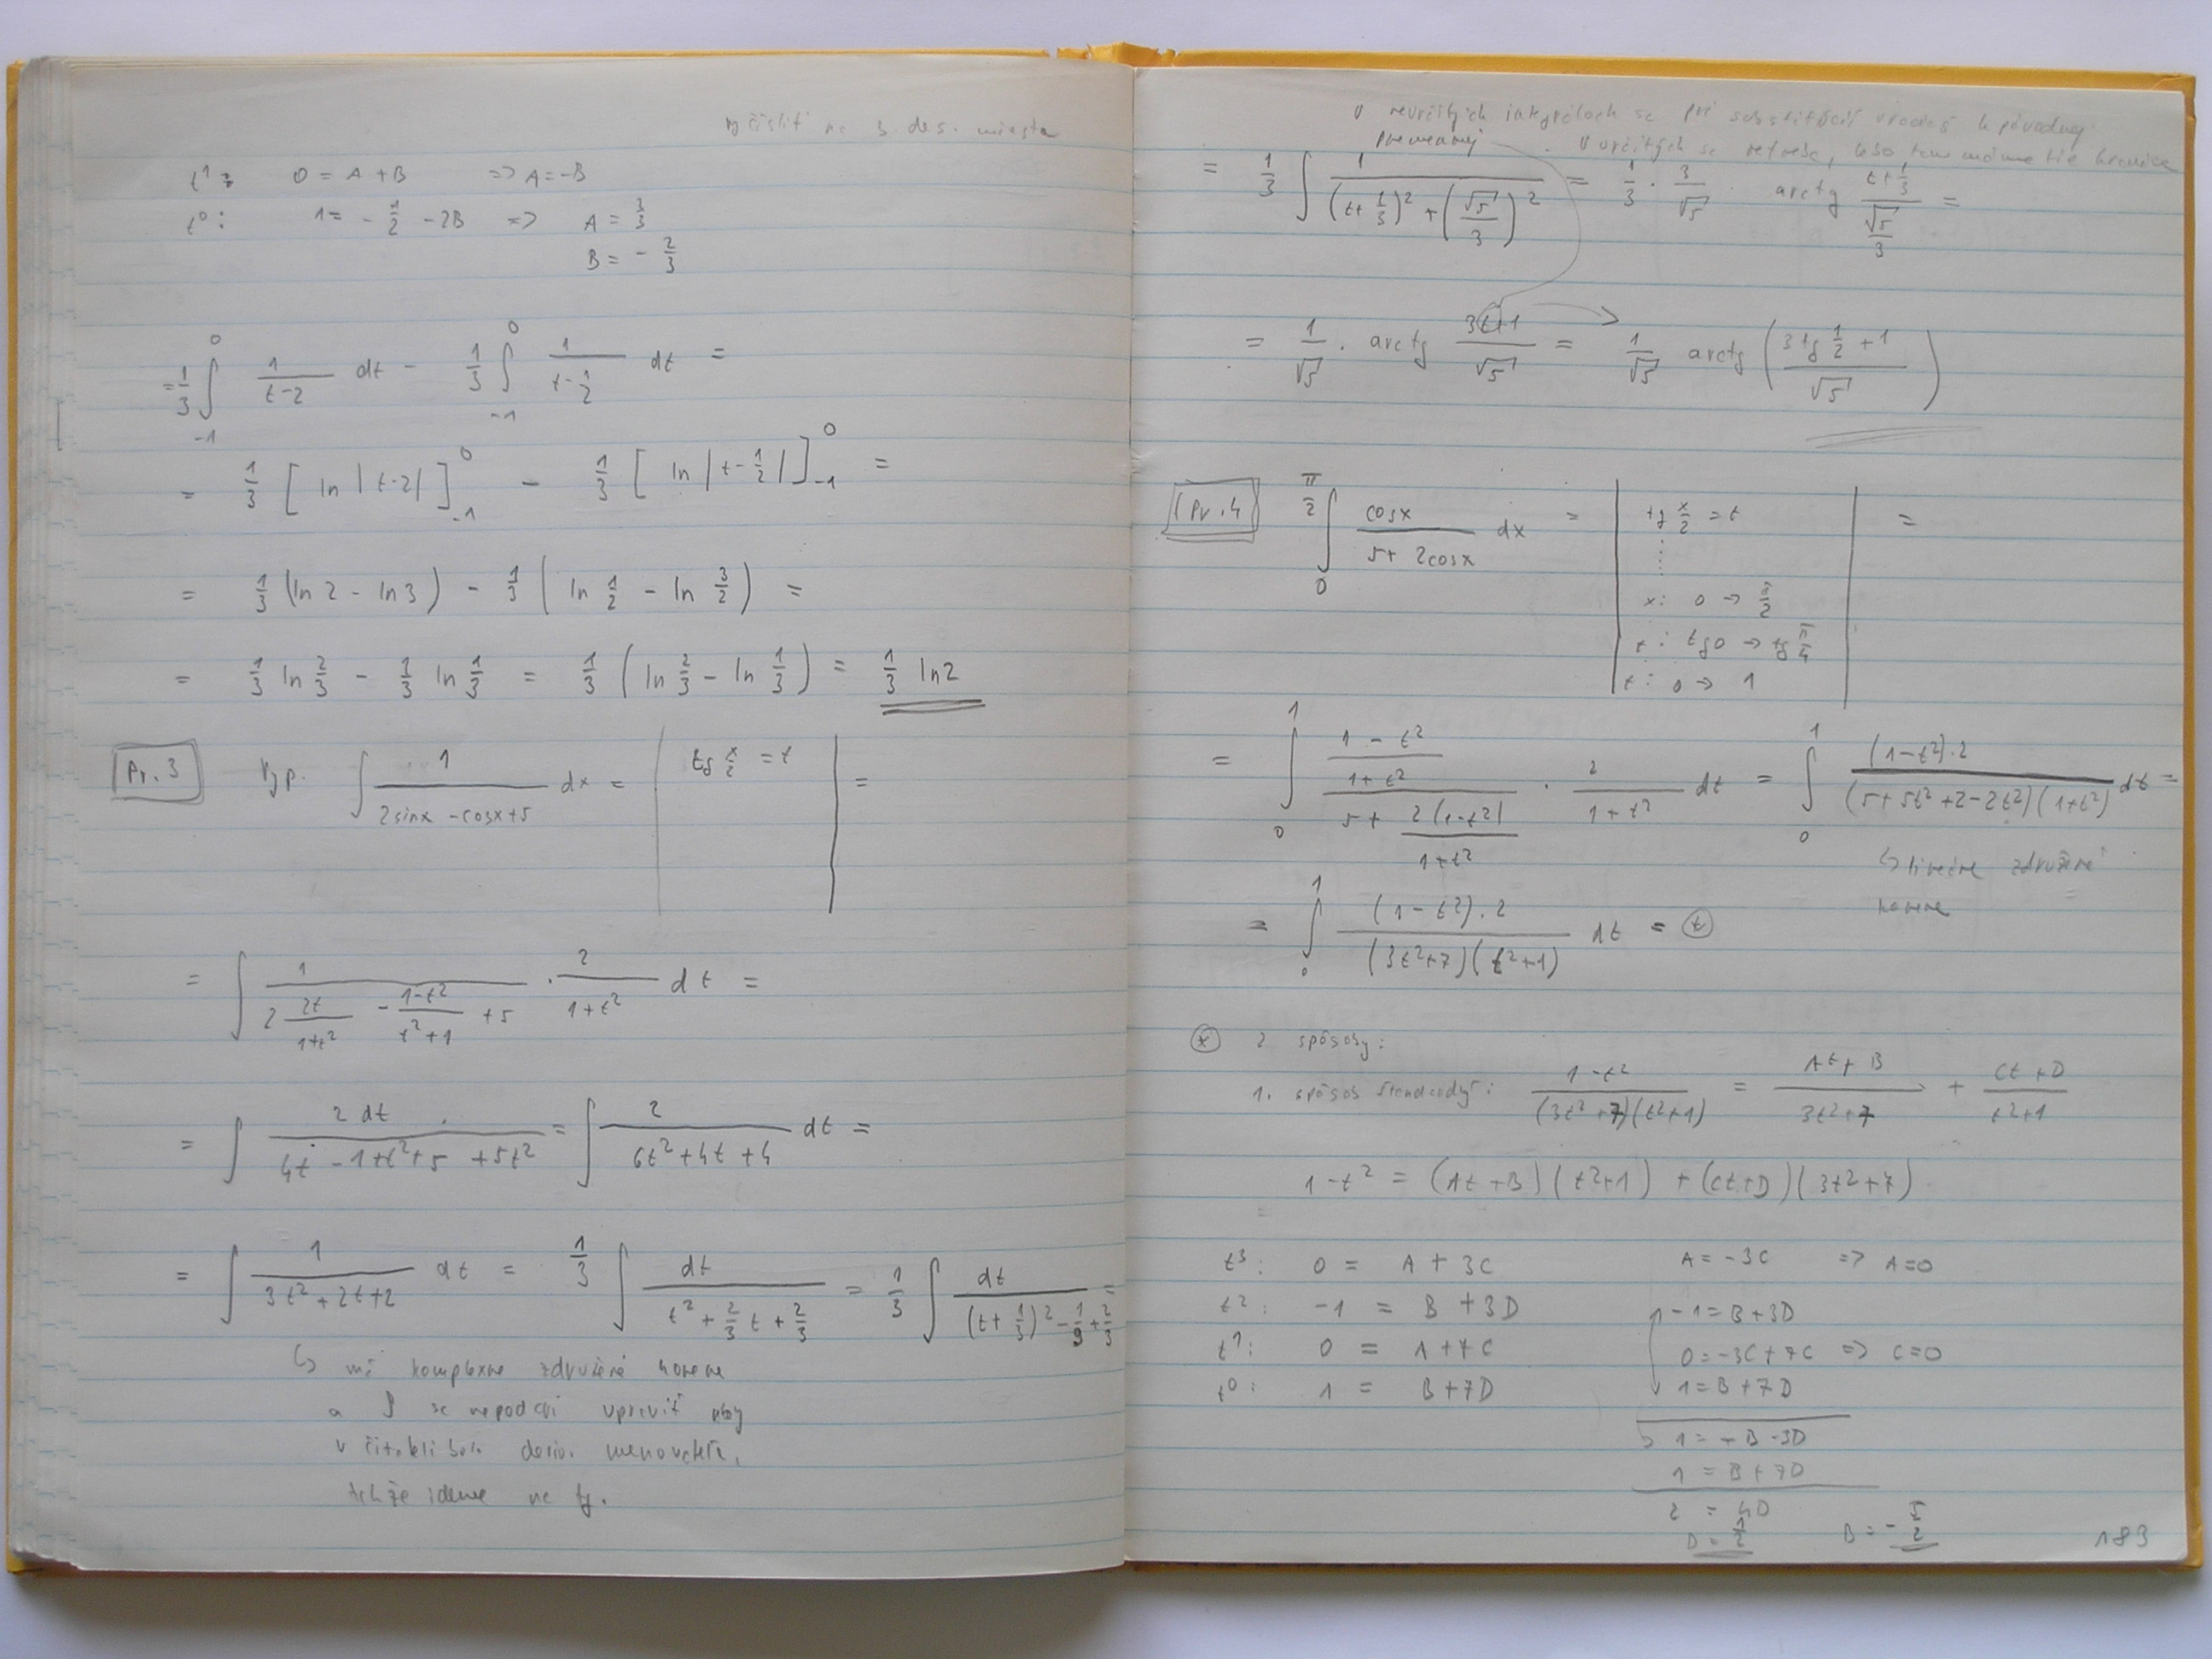 vyčísliť na 3 des. miesta
t¹: 0 = A + B => A = -B
t⁰: 1 = - 1/2 - 2B => A = 3/3
B = - 2/3
= 1/3 ∫_{-1}^{0} 1/(t-2) dt - 1/3 ∫_{-1}^{0} 1/(t-1/2) dt =
= 1/3 [ ln |t-2| ]_{-1}^{0} - 1/3 [ ln |t-1/2| ]_{-1}^{0} =
= 1/3 (ln 2 - ln 3) - 1/3 ( ln 1/2 - ln 3/2 ) =
= 1/3 ln 2/3 - 1/3 ln 1/3 = 1/3 ( ln 2/3 - ln 1/3 ) = 1/3 ln2
Pr. 3 Vyp. ∫ 1/(2sinx - cosx + 5) dx = | tg x/2 = t | =
= ∫ 1/(2 2t/(1+t²) - (1-t²)/(t²+1) + 5) · 2/(1+t²) dt =
= ∫ 2 dt/(4t - 1 + t² + 5 + 5t²) = ∫ 2/(6t² + 4t + 4) dt =
= ∫ 1/(3t² + 2t + 2) dt = 1/3 ∫ dt/(t² + 2/3 t + 2/3) = 1/3 ∫ dt/((t + 1/3)² - 1/9 + 2/3) =
↳ má komplexne združené korene
a ∫ sa nepodarí upraviť aby
v čitateli bola deriv. menovateľa,
takže ideme na tg.
v neurčitých integráloch sa pri substitúcii vraciaš k pôvodnej
premennej. V určitých sa netreba, lebo tam máme tie hranice
= 1/3 ∫ 1/((t + 1/3)² + (√5/3)²) = 1/3 · 3/√5 arctg (t + 1/3)/(√5/3) =
= 1/√5 · arctg (3t+1)/√5 = 1/√5 arctg ( (3 tg 1/2 + 1)/√5 )
Pr. 4 ∫_{0}^{π/2} cosx/(5 + 2cosx) dx = | tg x/2 = t | =
⋮
x: 0 → π/2
t: tg0 → tg π/4
t: 0 → 1
= ∫_{0}^{1} ((1 - t²)/(1 + t²))/(5 + 2(1-t²)/(1+t²)) · 2/(1+t²) dt = ∫_{0}^{1} (1-t²)·2/((5+5t²+2-2t²)(1+t²)) dt =
↳ lineárne združené
korene
= ∫_{0}^{1} (1-t²)·2/((3t²+7)(t²+1)) dt = ⊛
⊛ 2 spôsoby:
1. spôsob štandardný: (1-t²)/((3t²+7)(t²+1)) = (At + B)/(3t²+7) + (Ct + D)/(t²+1)
1-t² = (At + B)(t²+1) + (Ct+D)(3t²+7)
t³: 0 = A + 3C A = -3C => A=0
t²: -1 = B + 3D -1 = B+3D
t¹: 0 = A + 7C 0 = -3C + 7C => C=0
t⁰: 1 = B + 7D 1 = B + 7D
1 = -B -3D
1 = B + 7D
2 = 4D
D = 1/2 B = - 5/2
183